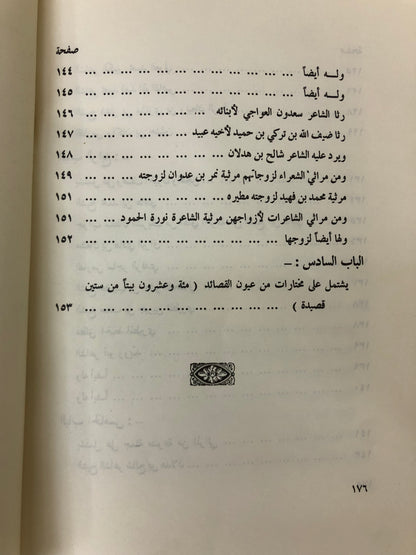 صفحة
ولـه أيضاً ... ... ... ... ... ... ... ... ... ... ... ١٤٤
ولـه أيضاً ... ... ... ... ... ... ... ... ... ... ... ١٤٥
رثا الشاعر سعدون العواجي لأبنائه ... ... ... ... ... ... ١٤٦
رثا ضيف الله بن تركي بن حميد لأخيه عبيد ... ... ... ... ١٤٧
ويرد عليه الشاعر شالح بن هدلان ... ... ... ... ... ... ١٤٨
ومن مراثي الشعراء لزوجاتهم مرثية نمر بن عدوان لزوجته ... ١٤٩
مرثية محمد بن فهيد لزوجته مطيره ... ... ... ... ... ... ١٥١
ومن مراثي الشاعرات لأزواجهن مرثية الشاعرة نورة الحمود ... ١٥١
ولها أيضاً لزوجها ... ... ... ... ... ... ... ... ... ١٥٢
الباب السادس : –
يشتمل على مختارات من عيون القصائد ( مئة وعشرون بيتاً من ستين
قصيدة ) ... ... ... ... ... ... ... ... ... ... ... ١٥٣
١٧٦